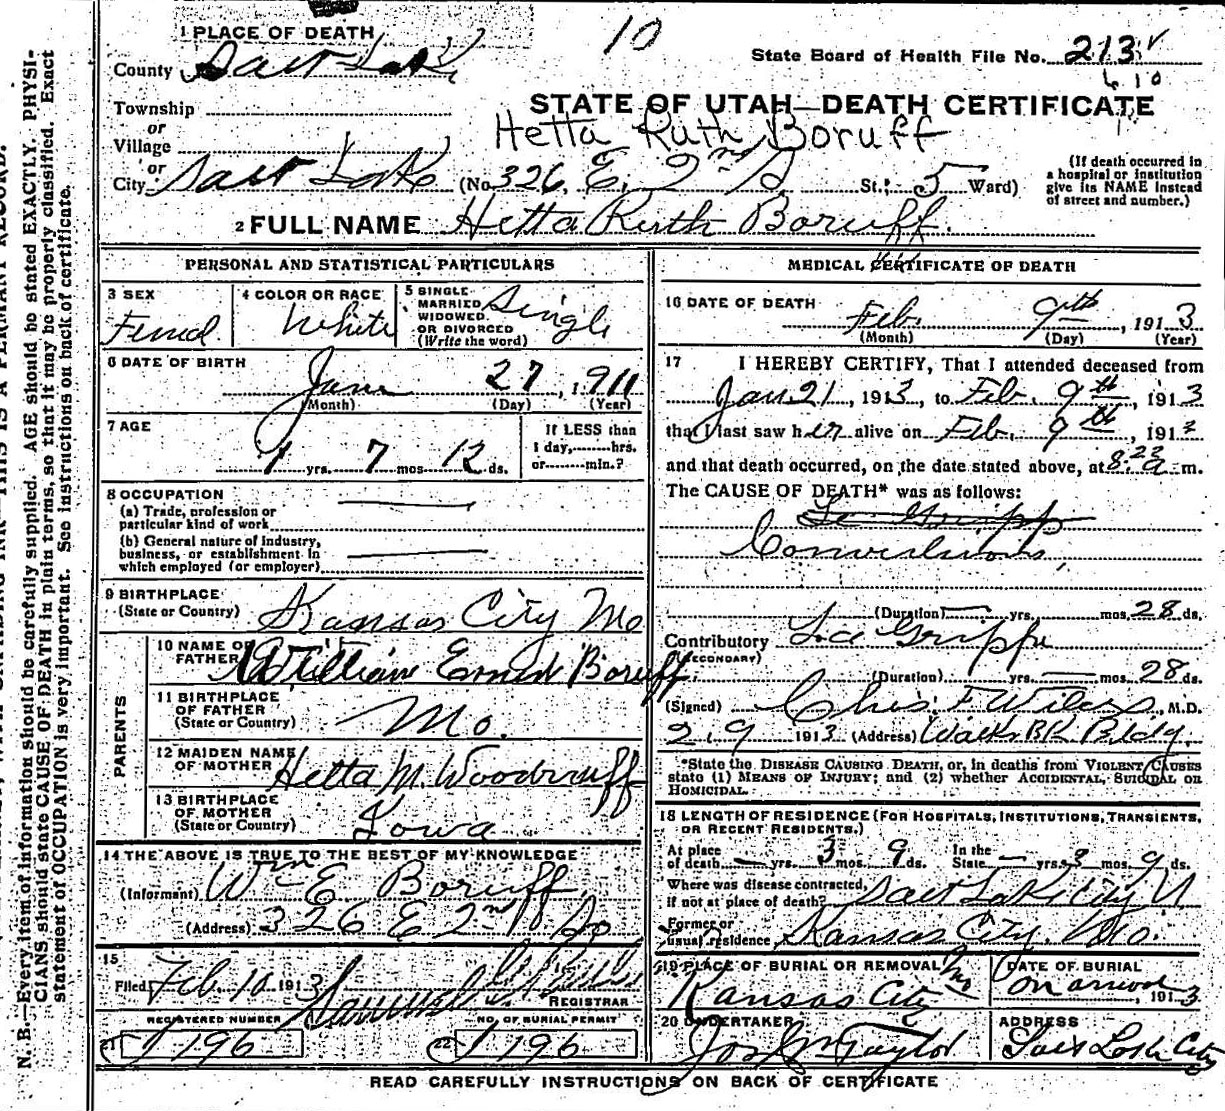 1 PLACE OF DEATH
10
State Board of Health File No. 213
County Salt Lake
610
Township
STATE OF UTAH—DEATH CERTIFICATE
or
Hetta Ruth Boruff
Village
or
City Salt Lake (No. 326, E. 2nd S. St.: 5 Ward)
(If death occurred in
a hospital or institution
give its NAME instead
of street and number.)
2 FULL NAME Hetta Ruth Boruff.
PERSONAL AND STATISTICAL PARTICULARS
3 SEX
Femal
4 COLOR OR RACE
White
5 SINGLE
MARRIED
WIDOWED
OR DIVORCED
(Write the word)
Single
6 DATE OF BIRTH
June 27, 1911
(Month) (Day) (Year)
7 AGE
1 yrs. 7 mos. 12 ds.
If LESS than
1 day,........hrs.
or.........min.?
8 OCCUPATION
(a) Trade, profession or
particular kind of work
(b) General nature of industry,
business, or establishment in
which employed (or employer)
9 BIRTHPLACE
(State or Country) Kansas City Mo
PARENTS
10 NAME OF
FATHER William Ernest Boruff
11 BIRTHPLACE
OF FATHER
(State or Country) Mo.
12 MAIDEN NAME
OF MOTHER Hetta M. Woodruff
13 BIRTHPLACE
OF MOTHER
(State or Country) Iowa
14 THE ABOVE IS TRUE TO THE BEST OF MY KNOWLEDGE
(Informant) Wm E Boruff
(Address) 326 E 2nd So
15
Filed Feb. 10 1913 Samuel
REGISTRAR
REGISTERED NUMBER
21 196
NO. OF BURIAL PERMIT
22 196
MEDICAL CERTIFICATE OF DEATH
16 DATE OF DEATH
Feb. 9th, 1913
(Month) (Day) (Year)
17 I HEREBY CERTIFY, That I attended deceased from
Jan 21, 1913, to Feb. 9th, 1913
that I last saw her alive on Feb. 9th, 191
and that death occurred, on the date stated above, at 8:22 a m.
The CAUSE OF DEATH* was as follows:
La Gripp
Convulsions
(Duration) yrs. mos. 28 ds.
Contributory La Grippe
(SECONDARY)
(Duration) yrs. mos. 28 ds.
(Signed) Chas. F Wilcox, M.D.
2.9 1913 (Address) Walks BK Bldg.
*State the DISEASE CAUSING DEATH, or, in deaths from VIOLENT CAUSES
state (1) MEANS OF INJURY; and (2) whether ACCIDENTAL, SUICIDAL OR
HOMICIDAL.
18 LENGTH OF RESIDENCE (FOR HOSPITALS, INSTITUTIONS, TRANSIENTS,
OR RECENT RESIDENTS.)
At place
of death — yrs. 3 mos. 9 ds.
In the
State — yrs. 3 mos. 9 ds.
Where was disease contracted,
if not at place of death? Salt Lake City U
Former or
usual residence Kansas City. Mo.
19 PLACE OF BURIAL OR REMOVAL
Kansas City Mo
DATE OF BURIAL
On arrival, 1913
20 UNDERTAKER
Jos Wm Taylor
ADDRESS
Salt Lake City
READ CAREFULLY INSTRUCTIONS ON BACK OF CERTIFICATE
N. B.—Every item of information should be carefully supplied. AGE should be stated EXACTLY. PHYSI-
CIANS should state CAUSE OF DEATH in plain terms, so that it may be properly classified. Exact
statement of OCCUPATION is very important. See instructions on back of certificate.
THIS IS A PERMANENT RECORD.